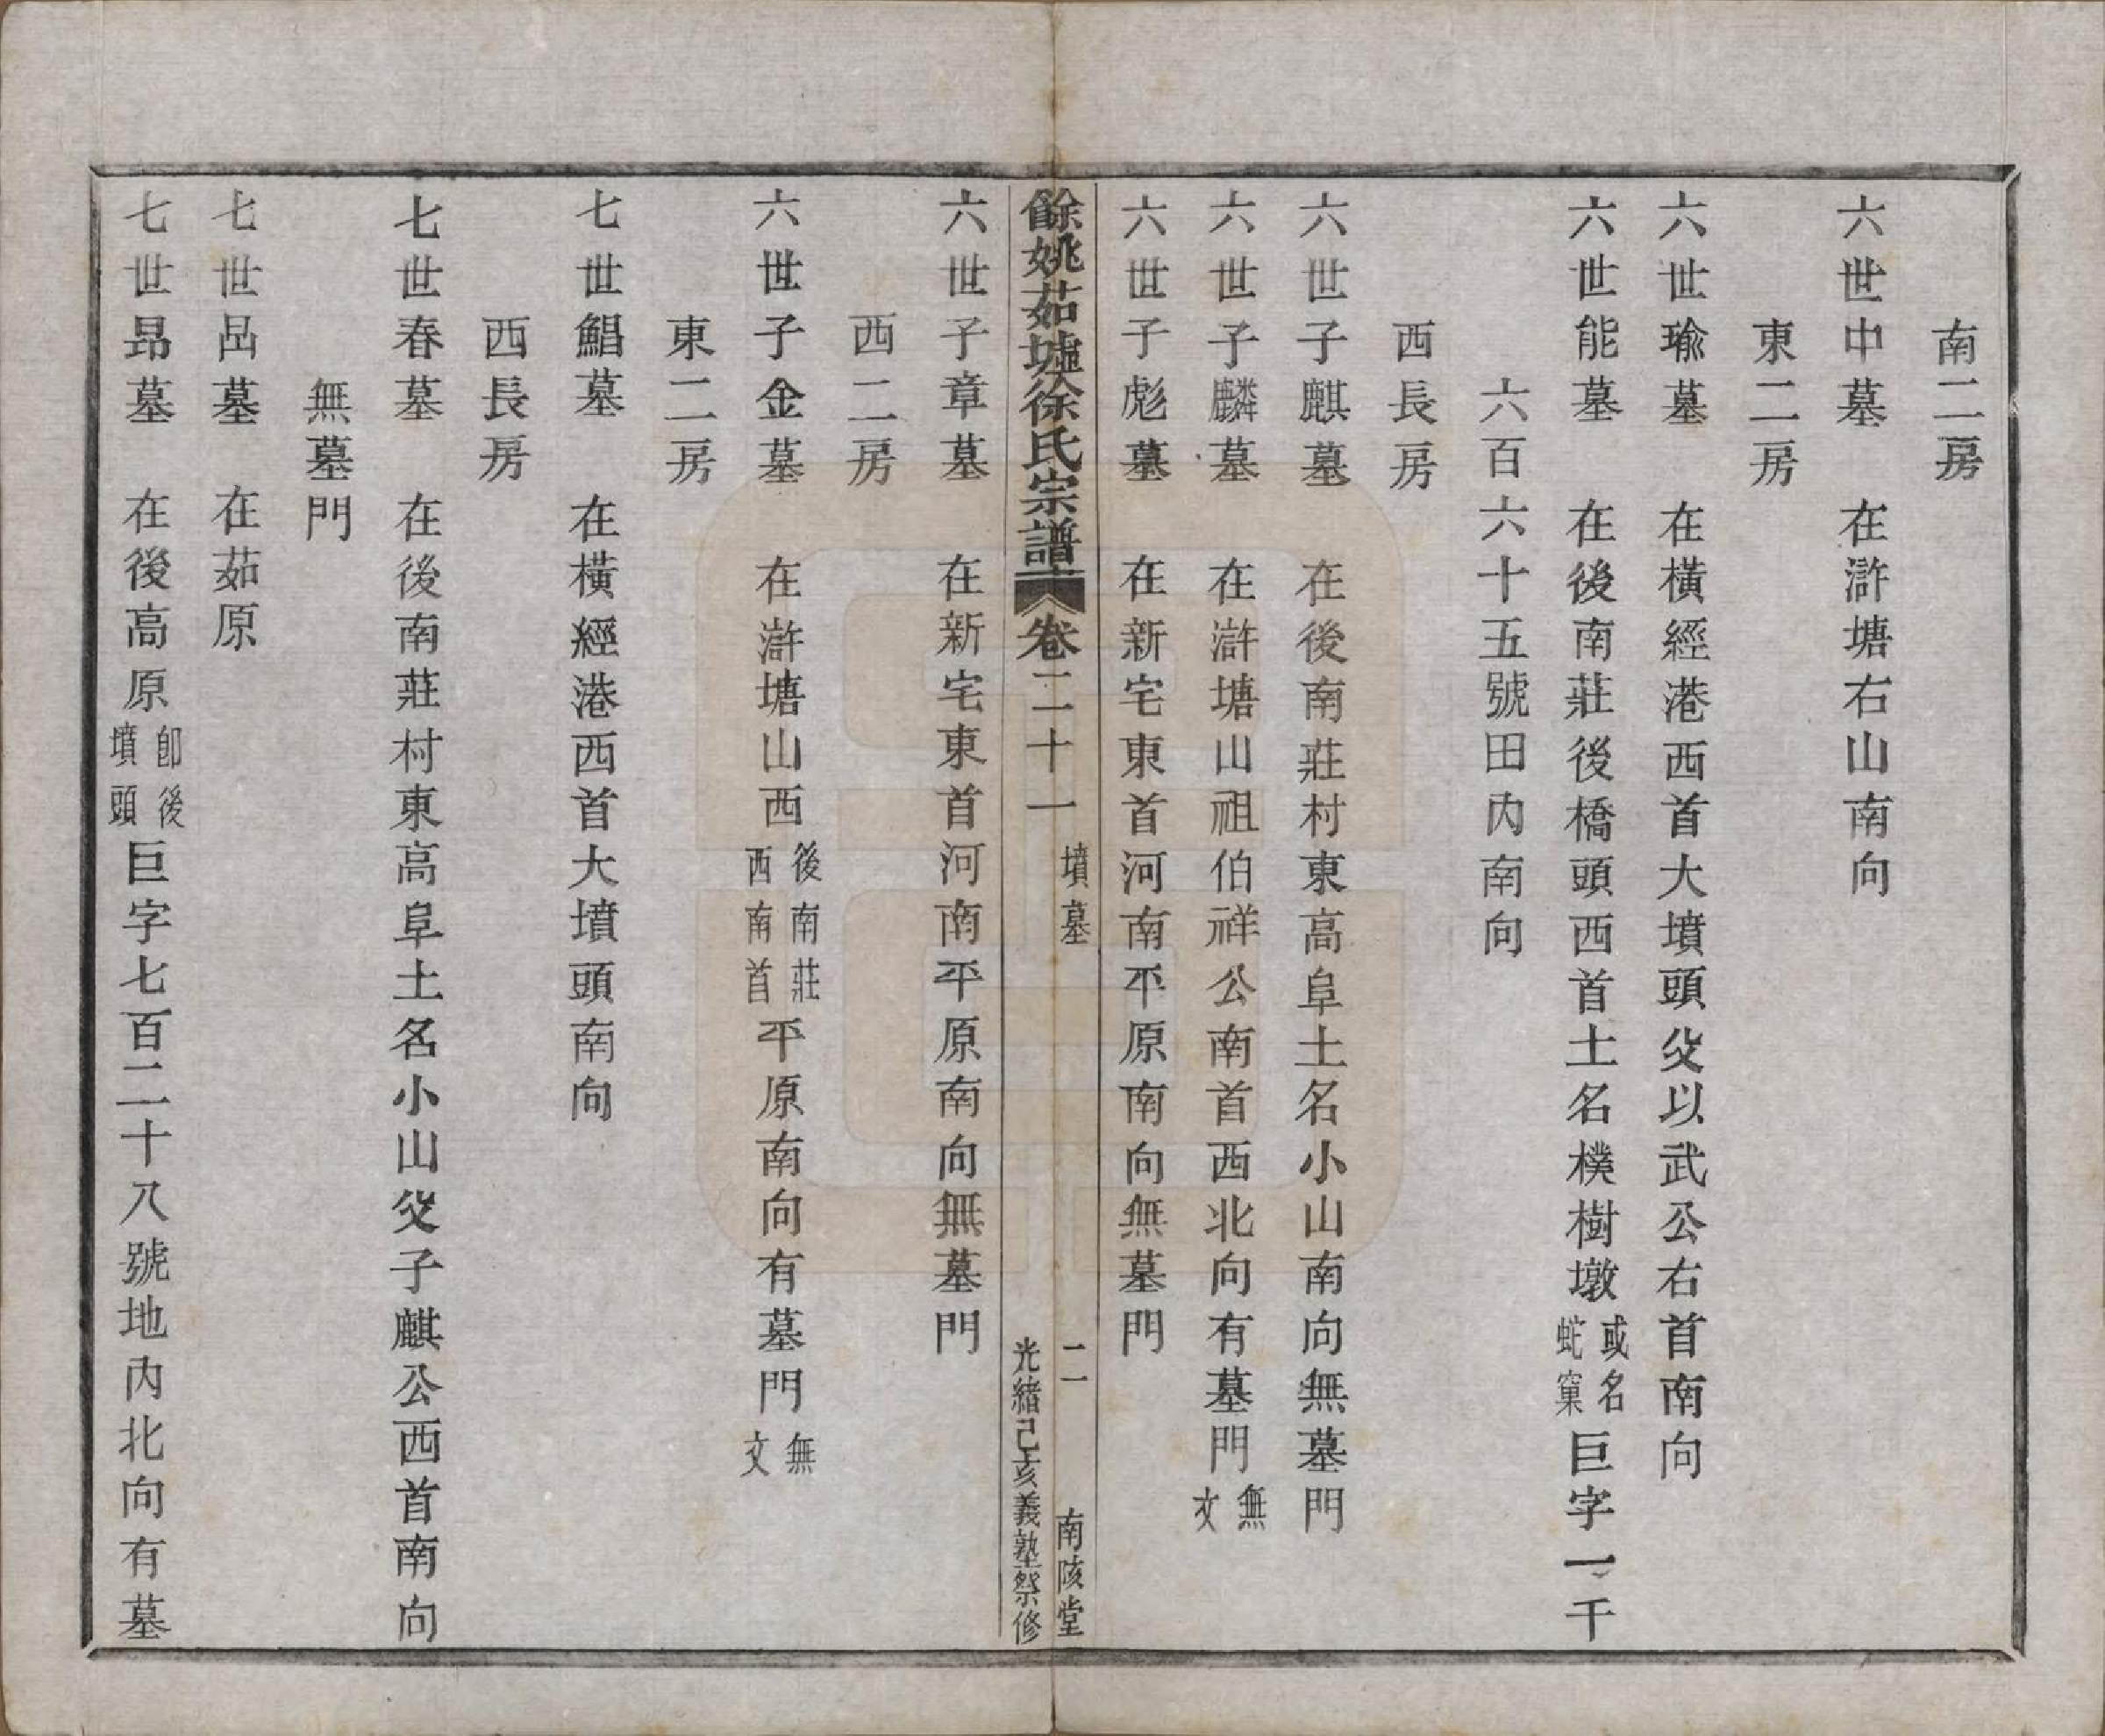 南二房
六世中墓　在滸塘右山南向
東二房
六世瑜墓　在橫經港西首大墳頭父以武公右首南向
六世能墓　在後南莊後橋頭西首土名樸樹墩或名蛇窠巨字一千
六百六十五號田內南向
西長房
六世子麒墓　在後南莊村東高阜土名小山南向無墓門
六世子麟墓　在滸塘山祖伯祥公南首西北向有墓門無文
六世子彪墓　在新宅東首河南平原南向無墓門
餘姚茹墟徐氏宗譜　卷二十一　墳墓　二　南陔堂
光緒己亥義塾祭修
六世子章墓　在新宅東首河南平原南向無墓門
西二房
六世子金墓　在滸塘山西後南莊西南首平原南向有墓門無文
東二房
七世鯧墓　在橫經港西首大墳頭南向
西長房
七世春墓　在後南莊村東高阜土名小山父子麒公西首南向
無墓門
七世品墓　在茹原
七世昂墓　在後高原卽後墳頭巨字七百二十八號地內北向有墓